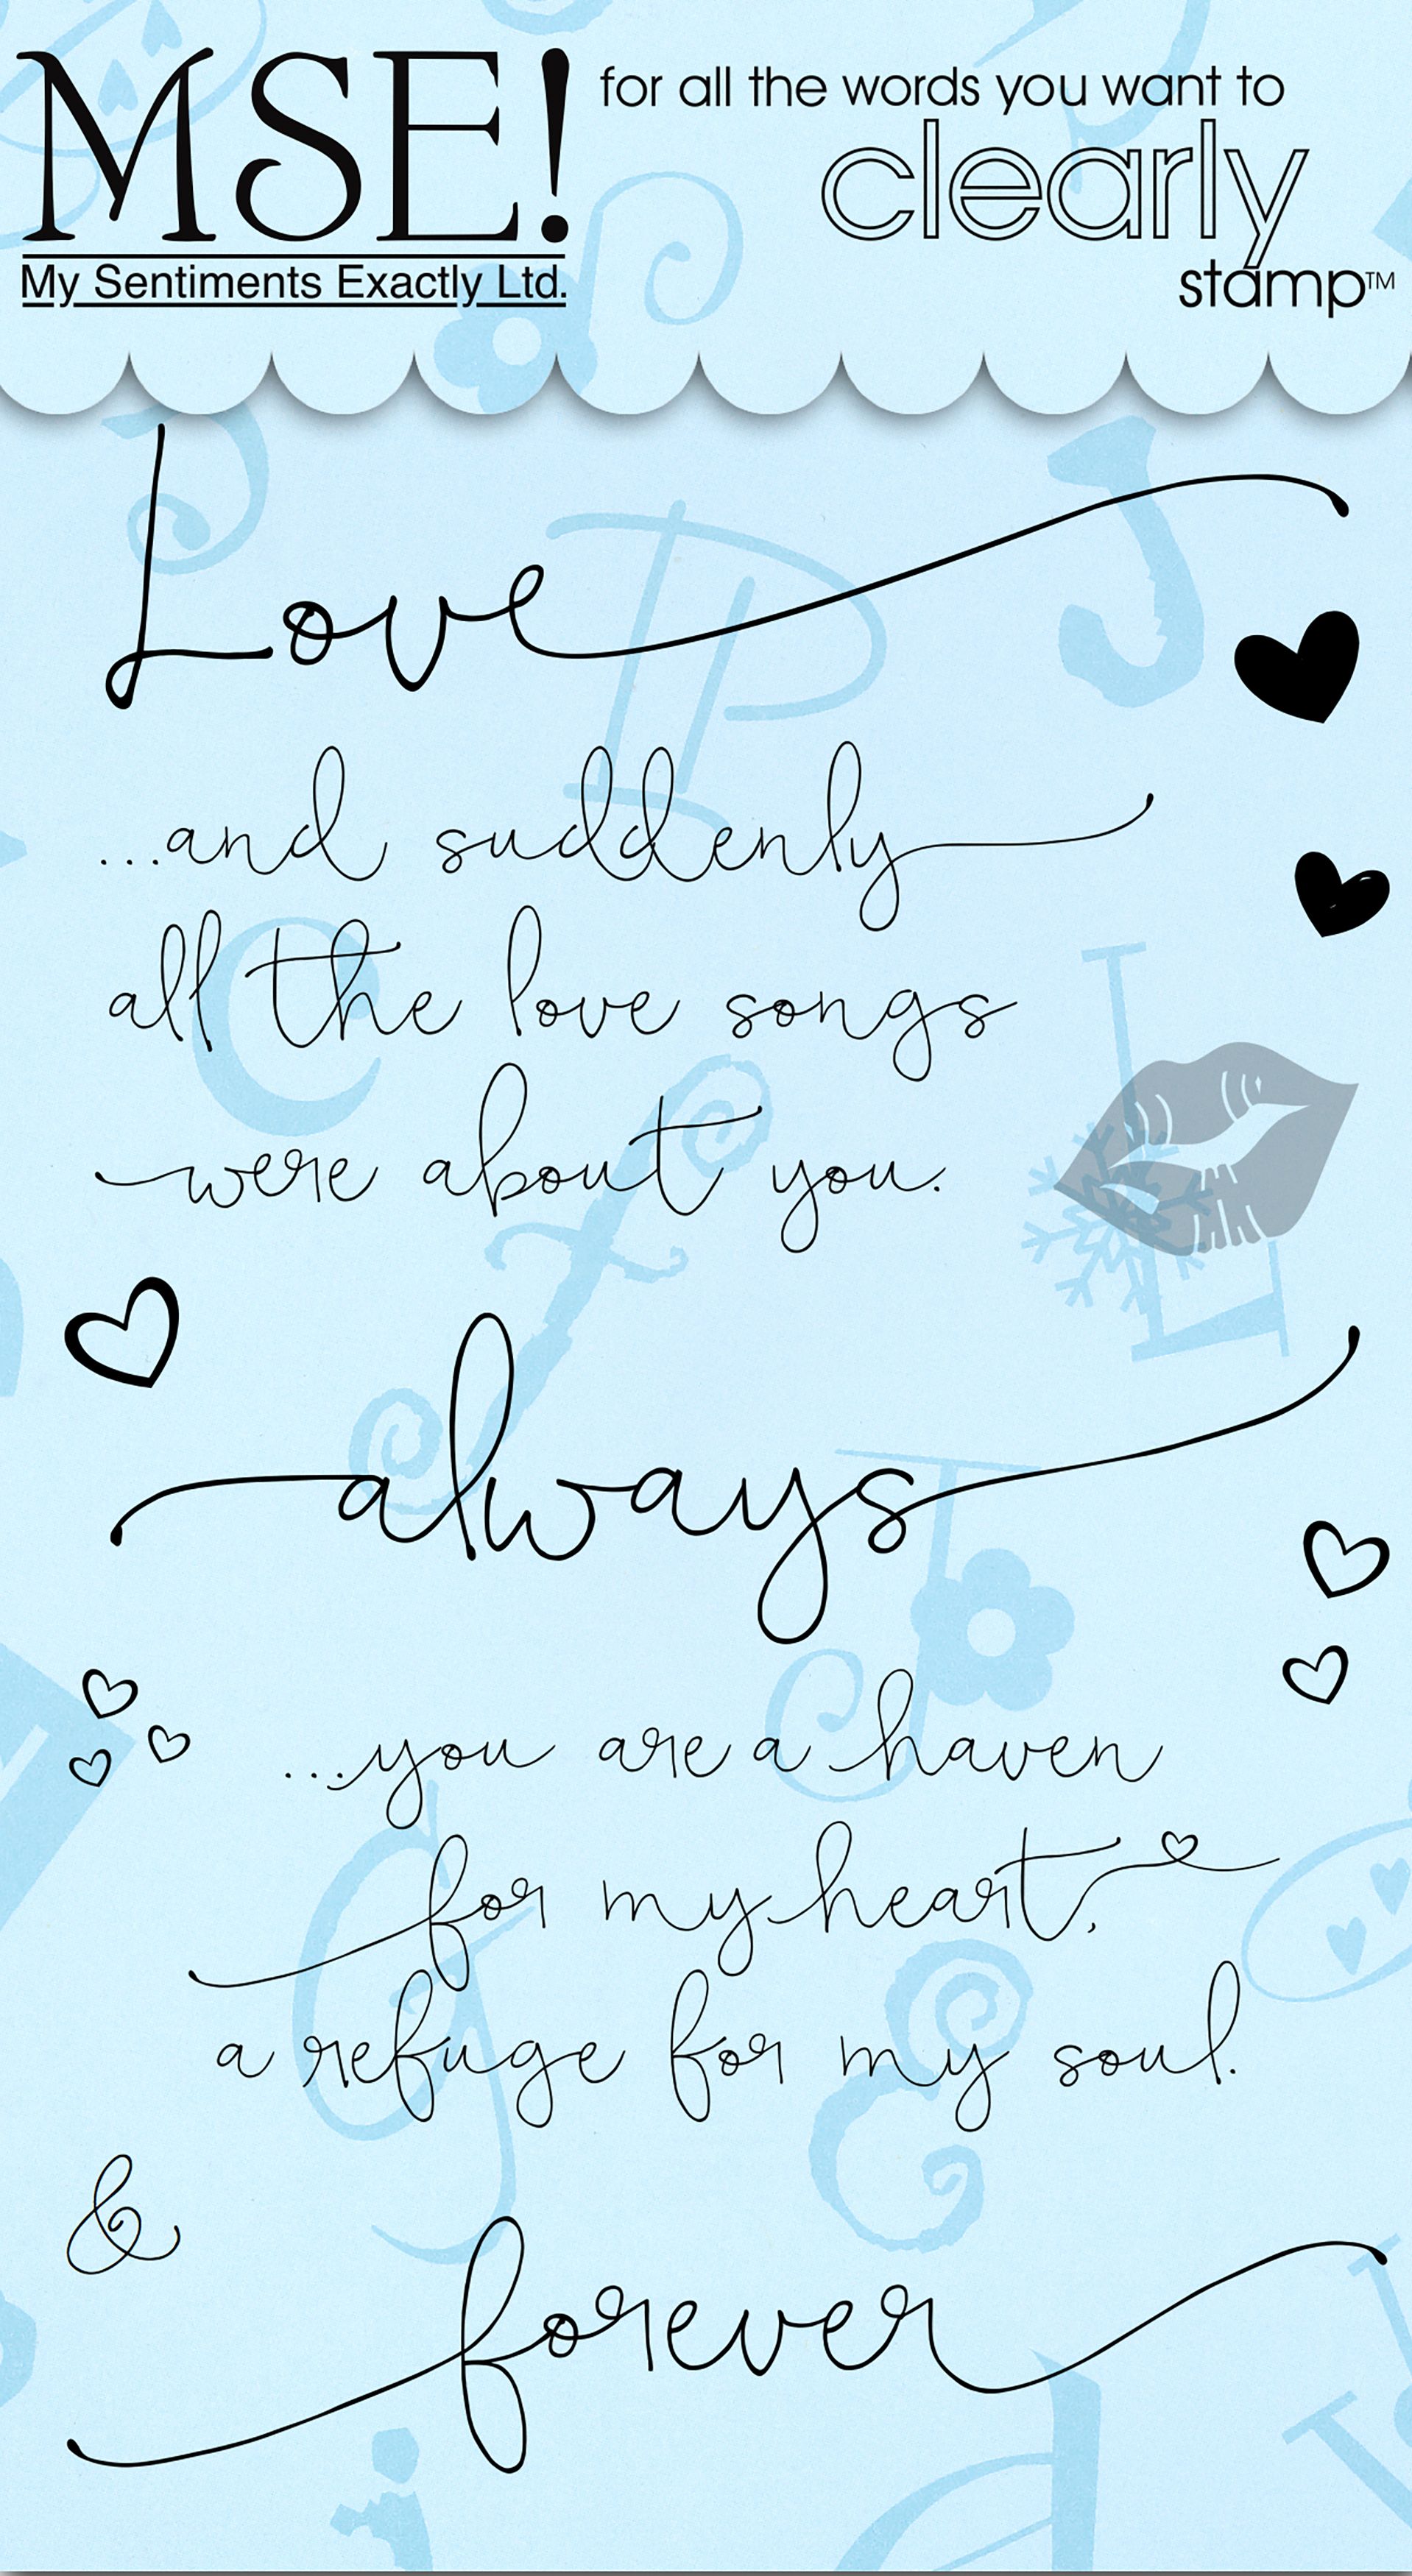 MSE! for all the words you want to
clearly
My Sentiments Exactly Ltd. stamp™
Love
...and suddenly
all the love songs
were about you.
always
...you are a haven
for my heart,
a refuge for my soul.
&
forever